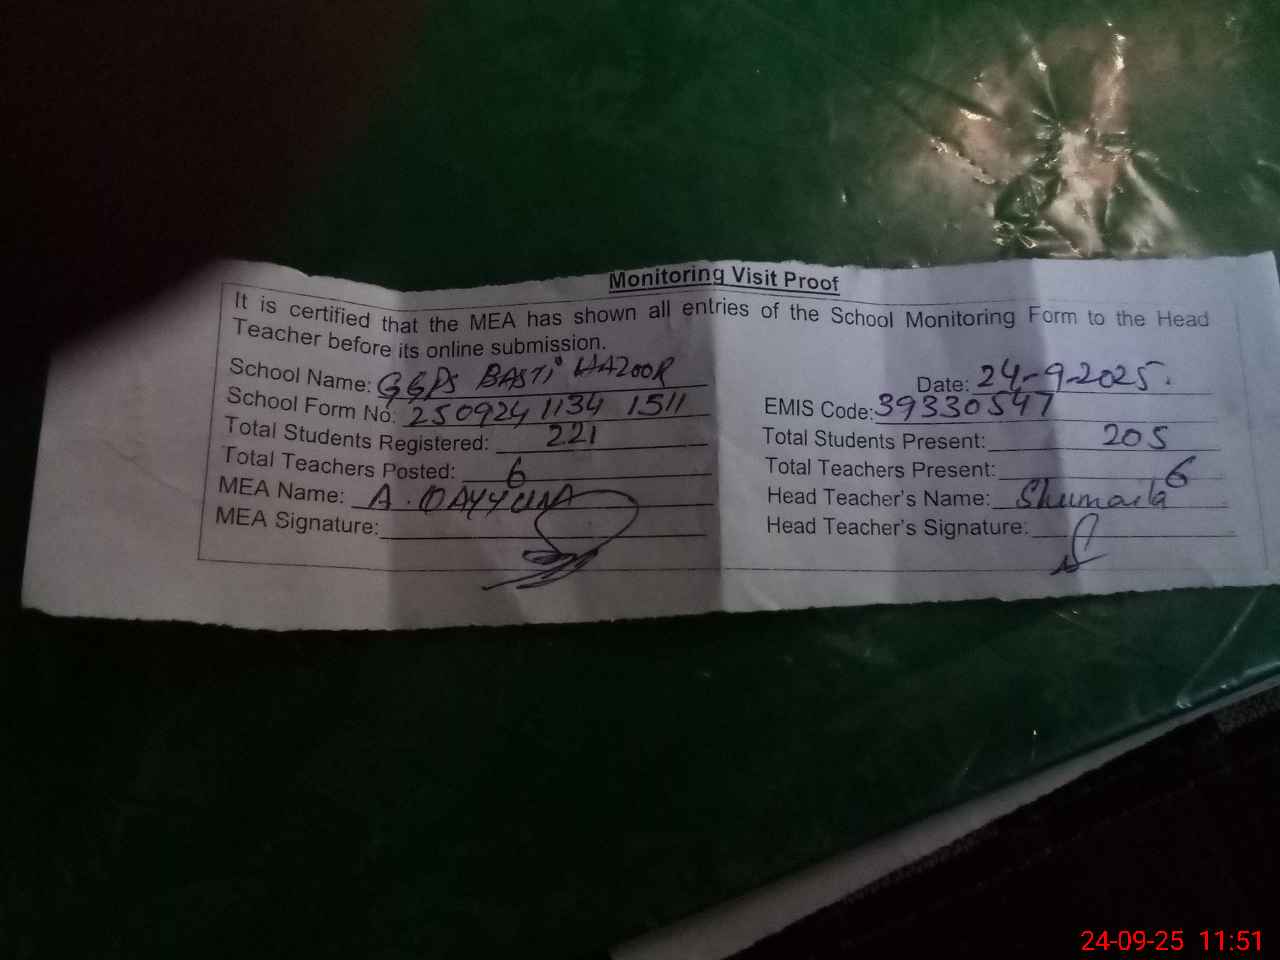 Monitoring Visit Proof
It is certified that the MEA has shown all entries of the School Monitoring Form to the Head
Teacher before its online submission.
School Name: GGPS BASTI HAZOOR Date: 24-9-2025.
School Form No: 250924 1134 1511 EMIS Code: 39330547
Total Students Registered: 221 Total Students Present: 205
Total Teachers Posted: 6 Total Teachers Present: 6
MEA Name: A. QAYYUM Head Teacher's Name: Shumaila
MEA Signature: Head Teacher's Signature:
24-09-25 11:51